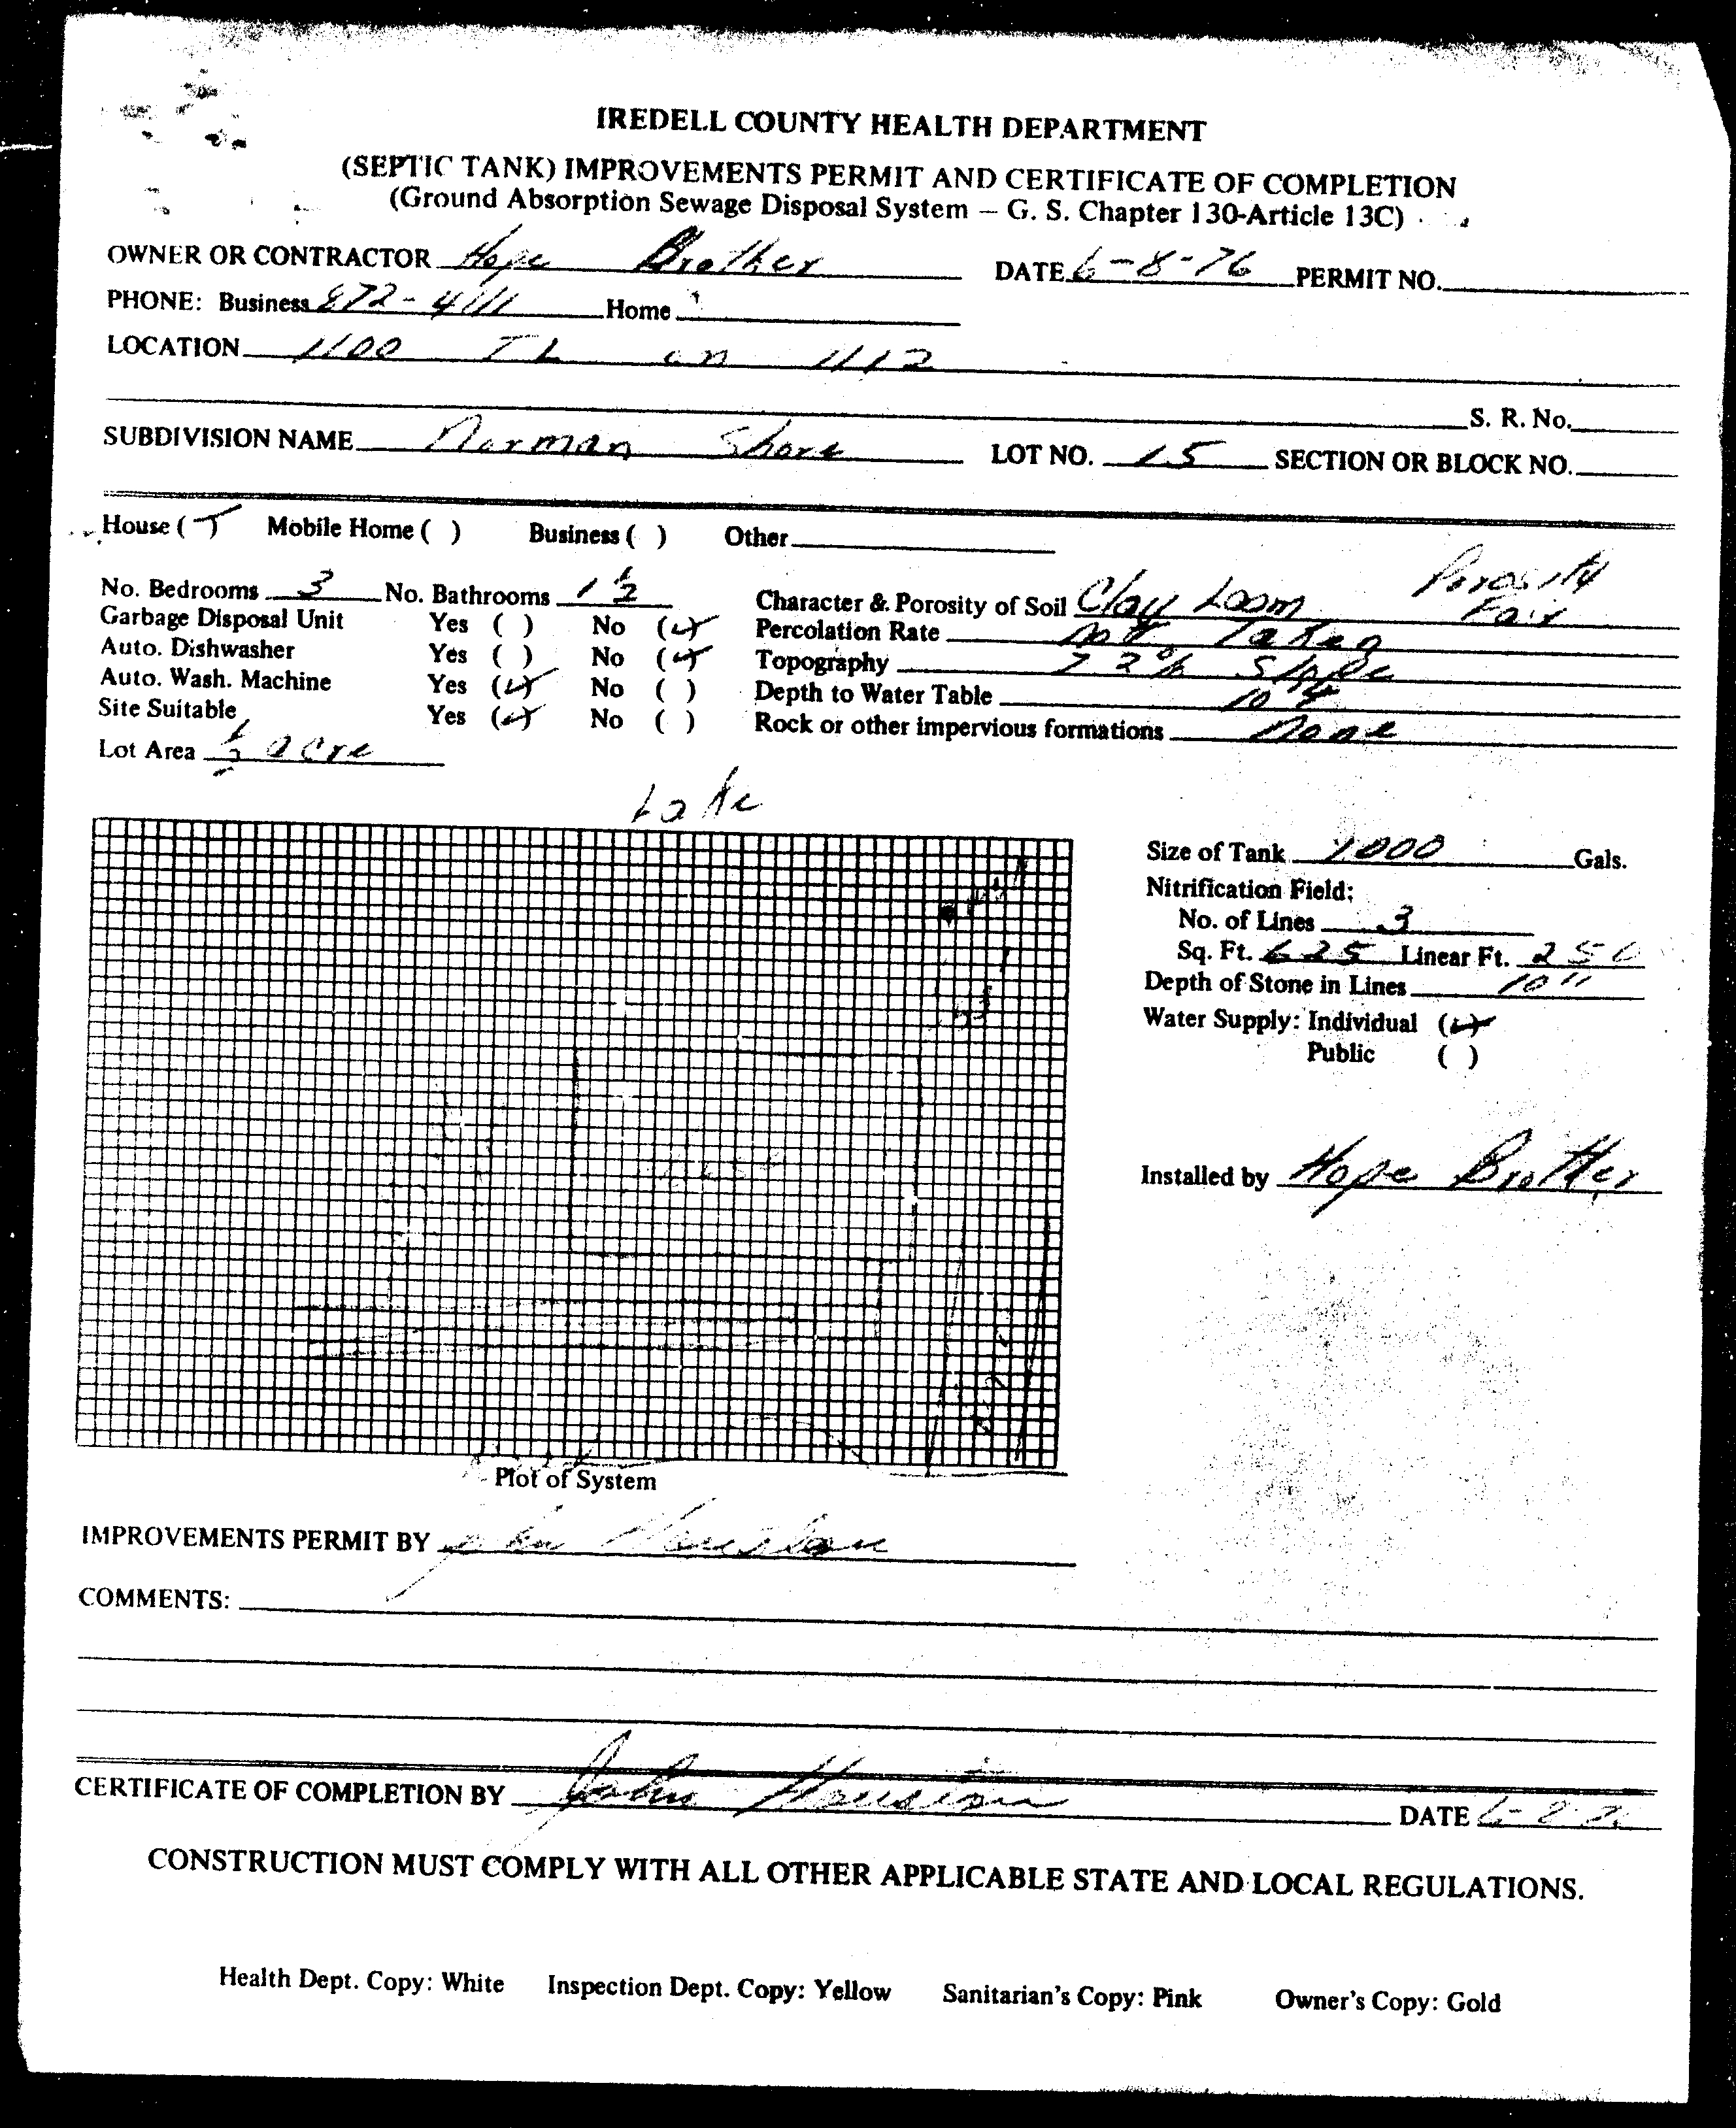 IREDELL COUNTY HEALTH DEPARTMENT
(SEPTIC TANK) IMPROVEMENTS PERMIT AND CERTIFICATE OF COMPLETION
(Ground Absorption Sewage Disposal System – G. S. Chapter 130-Article 13C)
OWNER OR CONTRACTOR Hope Brother DATE 6-8-76 PERMIT NO.
PHONE: Business 872-4111 Home
LOCATION 1100 TL on 1112
S. R. No.
SUBDIVISION NAME Norman Shore LOT NO. 15 SECTION OR BLOCK NO.
House ( ) Mobile Home ( ) Business ( ) Other
Porosity
No. Bedrooms 3 No. Bathrooms 1 1/2 Character & Porosity of Soil Clay Loam Fair
Garbage Disposal Unit Yes ( ) No (✓) Percolation Rate not Taken
Auto. Dishwasher Yes ( ) No (✓) Topography 7 2% Slope
Auto. Wash. Machine Yes (✓) No ( ) Depth to Water Table 10
Site Suitable Yes (✓) No ( ) Rock or other impervious formations None
Lot Area 1/2 acre
Lake
Size of Tank 1000 Gals.
Nitrification Field:
No. of Lines 3
Sq. Ft. 625 Linear Ft. 250
Depth of Stone in Lines 10"
Water Supply: Individual (✓)
Public ( )
Installed by Hope Brother
Plot of System
IMPROVEMENTS PERMIT BY John Houston
COMMENTS:
CERTIFICATE OF COMPLETION BY John Houston DATE 6-8-76
CONSTRUCTION MUST COMPLY WITH ALL OTHER APPLICABLE STATE AND LOCAL REGULATIONS.
Health Dept. Copy: White Inspection Dept. Copy: Yellow Sanitarian's Copy: Pink Owner's Copy: Gold